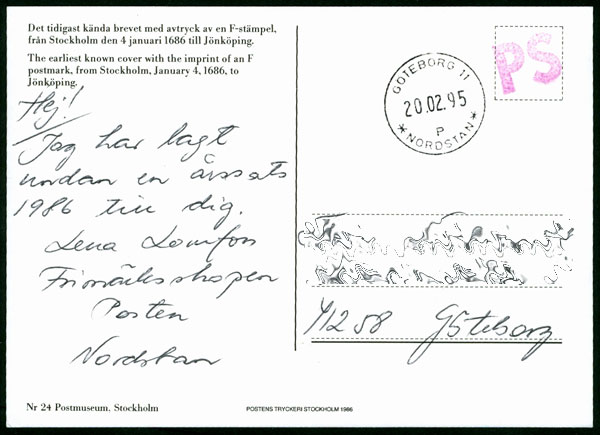 Det tidigast kända brevet med avtryck av en F-stämpel,
från Stockholm den 4 januari 1686 till Jönköping.
The earliest known cover with the imprint of an F
postmark, from Stockholm, January 4, 1686, to
Jönköping.
Hej!
Jag har lagt
undan en årssats
1986 till dig.
Lena
Frimärksshopen
Posten
Nordstan
Nr 24 Postmuseum, Stockholm
PS
GÖTEBORG 11
20.02.95
P
* NORDSTAN *
41258 Göteborg
POSTENS TRYCKERI STOCKHOLM 1986